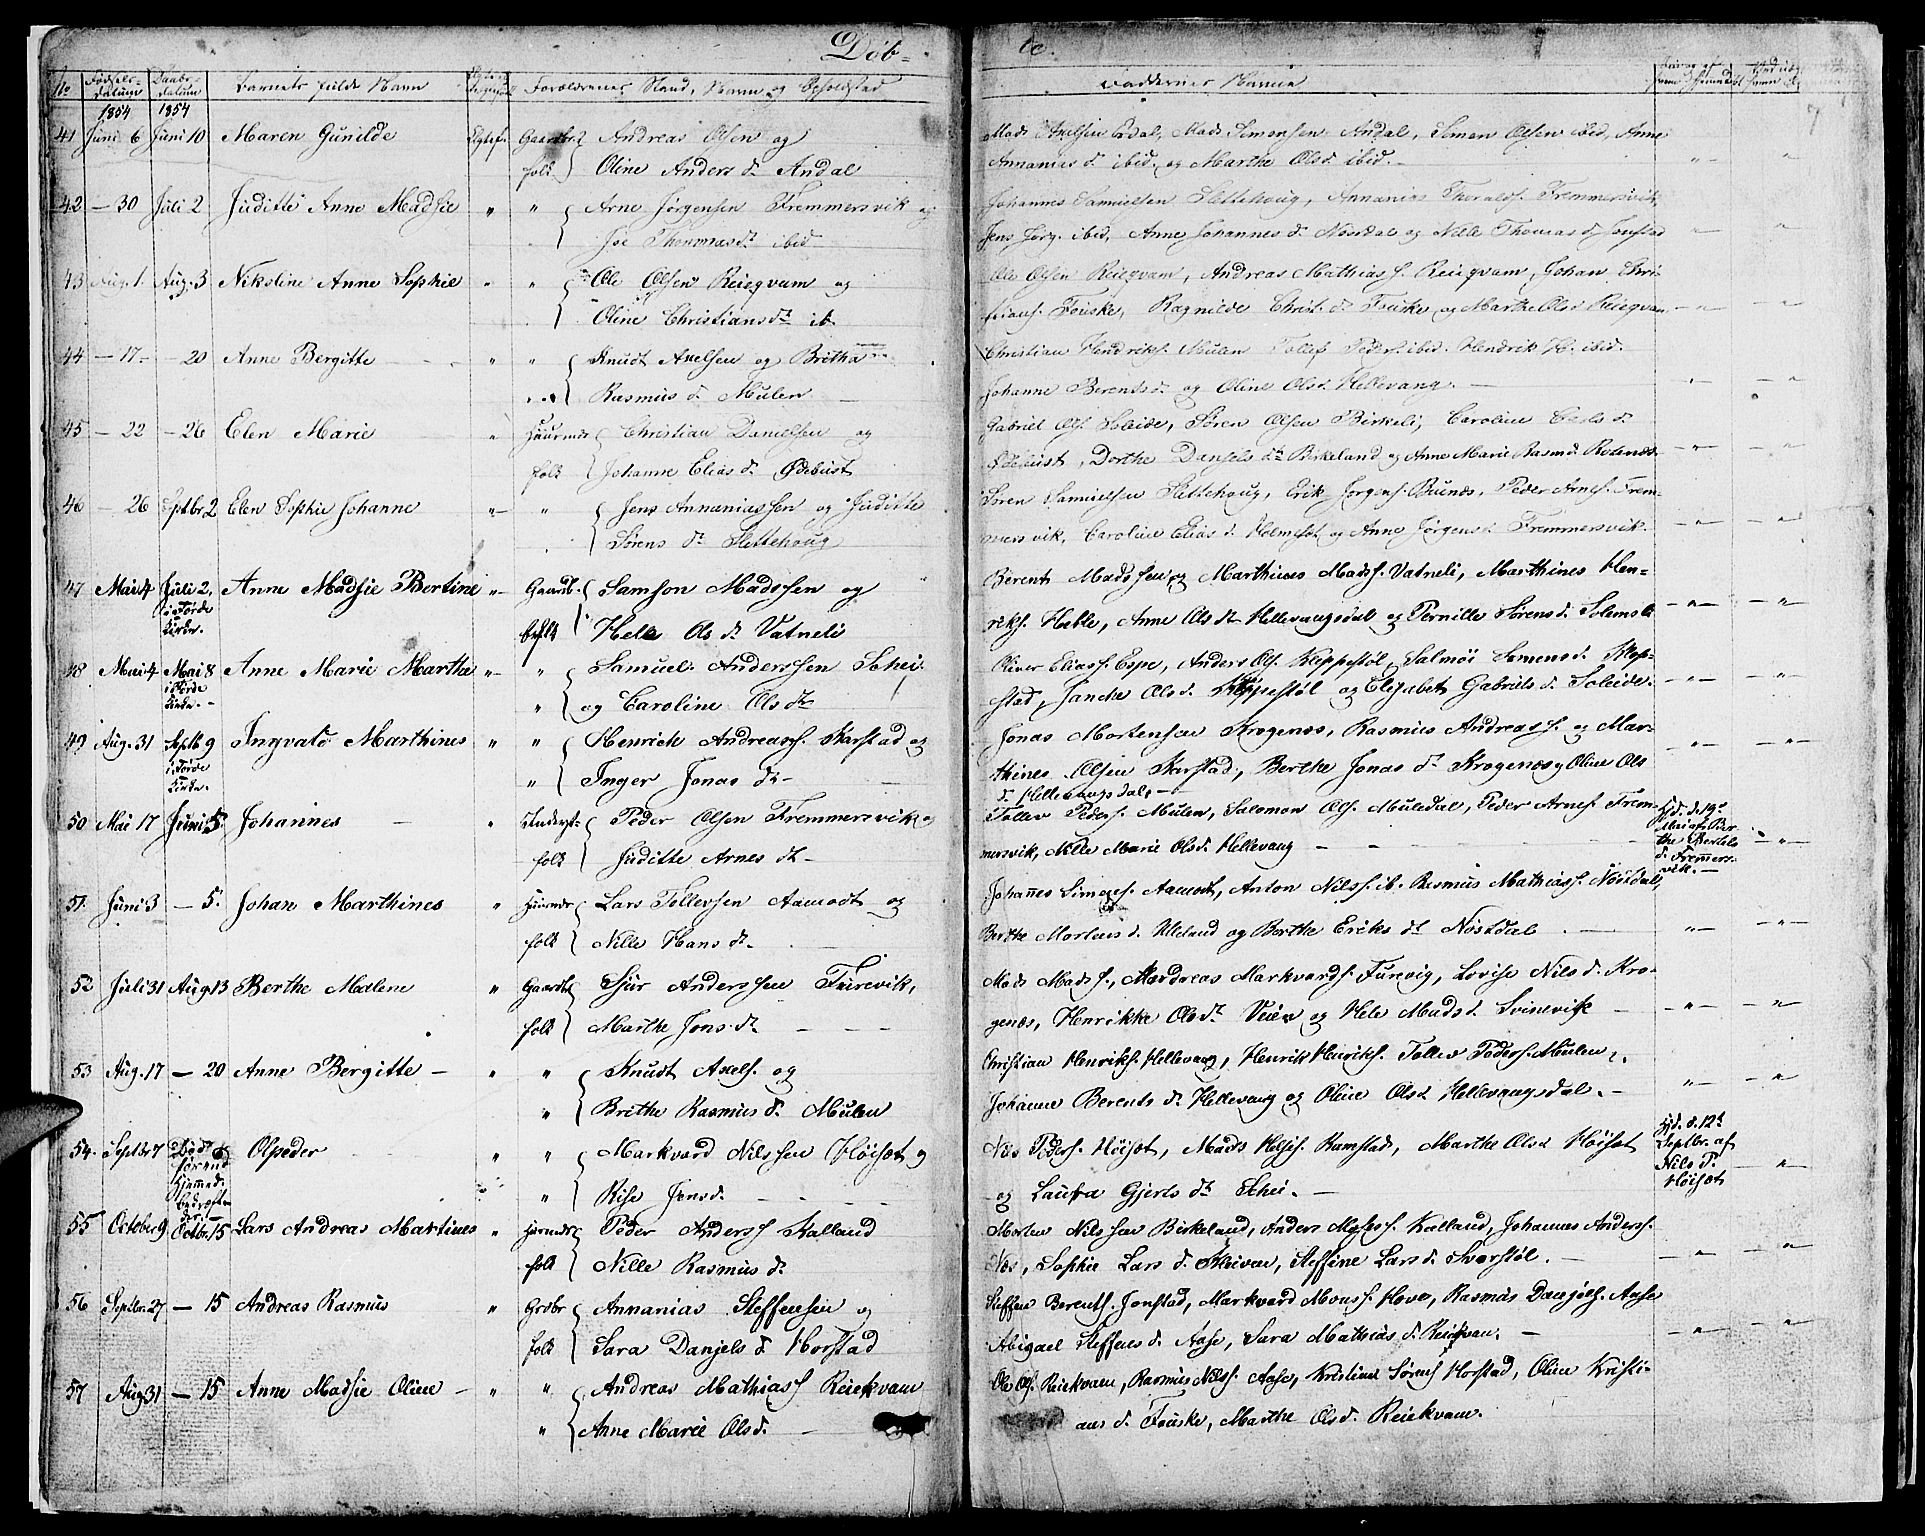 Døb- te.
No Fødsels-datum Daabs-datum Barnets fulde Navn Forældrenes Stand, Navn og Opholdsted Faddernes Navne
1854 1854
41 Juni 6 Juni 10 Maren Gunilde Ægtef. Gaardbr. Andreas Olsen og
folk Oline Anders d. Andal
Mads Axelsen Ardal, Mads Simonsen Andal, Simon Olsen ibid, Anne
Annanias d. ibid. og Marthe Olsd. ibid.
42 — 30 Juli 2 Juditte Anne Madsie " " Arne Jørgensen Fremmersvik og
Joe Thommesdt. ibid
Johannes Samuelsen Slettehoug, Annanias Thoralds. Fremmersvik,
Jens Jørg. ibid, Anne Johannes d. Nordal og Nille Thomas d. Jonstad
43 Aug. 1. Aug. 3 Nikoline Anne Sophie " " Ole Olsen Reieqvam og
Oline Christiansdt. ib
Ole Olsen Reieqvam, Andreas Mathias s. Reieqvam, Johan Chri-
stians. Fouske, Ragnilde Christ. d. Fouske og Marthe Olsd Reieqvam
44 — 17 — — 20 Anne Bergitte " " Knudt Axelsen og Britha
Rasmus d. Mulen
Christian Hendriks. Mulen Tollef Peders. ibid. Hendrik H. ibid.
Johanne Berentsd. og Oline Olsd. Hellevang. —
45 — 22 — 26 Elen Marie " Huusmds Christian Danielsen og
folk Johanne Elias d. Ødebust
Gabriel Ols. Soleide, Søren Olsen Birkeli, Caroline Carls d.
Ødebust, Dorthe Danjels dt. Birkeland og Anne Marie Rasmd. Rotenæs
46 — 26 Sptbr 2 Elen Sophie Johanne " " Jens Annaniassen og Juditte
Sørens dt. Slettehoug
Søren Samuelsen Slettehoug, Erik Jørgens. Buenæs, Peder Arnes. Frem-
mersvik, Caroline Elias d. Holmset og Anne Jørgensd. Fremmersvik.
47 Mai 4 Juli 2, i Førde Kirke. Anne Madsie Bertine " Gaardb. Samson Madssen og
folk Helle Ols dt. Vatneli
Berent Madssen og Marthines Mads. Vatneli, Marthines Hen-
riks. Hable, Anne Ols dt. Hellevangsdal og Pernille Sørens d. Solemsli
48 Mai 4 Mai 8 i Førde Kirke. Anne Marie Marthe " " Samuel Anderssen Schei
" og Caroline Ols dt.
Oliver Eliass. Espe, Anders Ols. Kleppestøl, Salmøi Simensd. Hop-
stad, Jancke Ols d. Kleppestøl og Elisabet Gabriels d. Soleide.
49 Aug. 31 Septb 9 i Førde Kirke. Ingvald Marthines " " Henrich Andreass. Skarstad og
" Inger Jonas dt. —
Jonas Mortensen Krogenæs, Rasmus Andreas s. og Mar-
thines Olsen Skarstad, Berthe Jonas dt. Krogenæs og Oline Ols
d. Hellevangsdal, —
50 Mai 17 Juni 5 Johannes " Inderst- Peder Olsen Fremmersvik og
folk Juditte Arnes dt. —
Tollev Peders. Mulen, Salomon Ols. Muledal, Peder Arnes. Frem-
mersvik, Nille Marie Olsd. Hellevang — Hjd. d. 19de
Mai af Ber-
the Bertels
d. Fremers-
vik. —
51. Juni 3 — 5. Johan Marthines " Huusmds Lars Tollevsen Aamodt og
folk Nille Hans dt.
Johannes Aamodt, Anton Nilss. ib. Rasmus Mathiass. Nøstdal,
Berthe Mortens d. Uleland og Berthe Eriks dt. Nøstdal
52 Juli 31 Aug 13 Berthe Malene " Gaardb. Sjur Anderssen Furevik,
folk Marthe Jons. dt. — — —
Mads Mads s., Andreas Markvards. Furevig, Lovise Nils d. Kro-
genæs, Henrikke Ols dt. Veien og Hele Madsd. Svinevik
53 Aug. 17 — 20 Anne Bergitte — " " Knudt Axels. og
" Brithe Rasmus d. Mulen
Christian Henriks. Hellevang, Henrik Henriks. Tollev Peders. Mulen,
Johanne Berents dt. Hellevang og Oline Olsd. Hellevangsdal. —
54. Septbr 7 Olpeder " " Markvard Nilssen Høiset og
" Rise Jensd. — — —
Peders. Høiset, Mads Ramstad, Marthe Olsd. Høiset
og Laufra Gjerts dt. Schei. — Hjd. d. 12te
Septbr. af
Nils P.
Høiset
55 October 9 Octbr. 15 Lars Andreas Martines " Huusmds Peder Anders s. Kalland
folk Nille Rasmus dt.
Morten Nilssen Birkeland, Anders Moses s. Kalland, Johannes Anders s.
Næs, Sophie Lars d. Skeivan, Steffine Lars d. Sværstøl. —
56 Septbr. 27 — 15 Andreas Rasmus " Grdbr Annanias Steffensen og
folk Sara Danjels d. Horstad
Steffen Berents. Jonstad, Markvard Monss. Hove, Rasmus Danjels. Aase
Abigael Steffens d. Aase, Sara Mathias d. Reiekvam. —
57 Aug 31 — 15 Anne Madsie Oline — " " Andreas Mathias s. Reiekvam
" Anne Marie Olsd. —
Ole Ols. Reiekvam, Rasmus Nilss. Aase, Kristian Sørens Horstad, Oline Kristi-
ans d. Fouske, Marthe Olsd. Reiekvam.
7